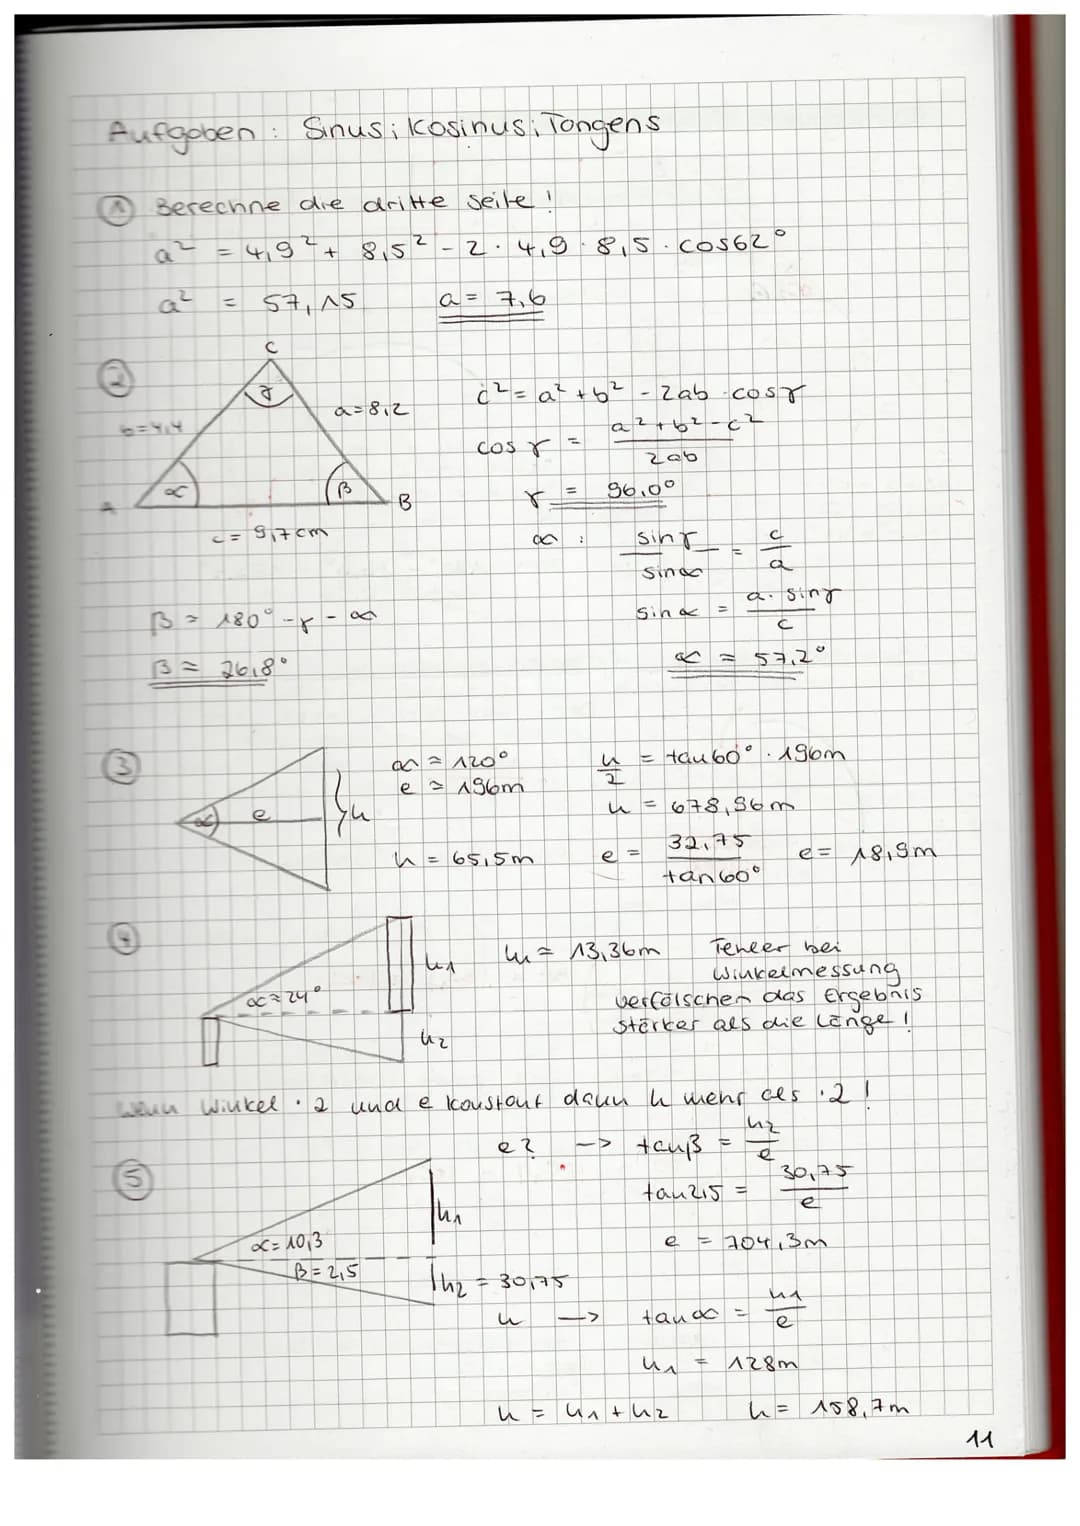 Aufgaben : Sinus ; Kosinus ; Tangens
① Berechne die dritte Seite !
a² = 4,9² + 8,5² - 2 · 4,9 · 8,5 · cos62°
a² = 57,15 a = 7,6
②
C
γ
b=4,4
a=8,2
α
β
A
B
c = 9,7cm
c² = a² + b² - 2ab · cosγ
cos γ = (a² + b² - c²) / 2ab
γ = 96,0°
α : sinγ / sinα = c / a
sinα = a · sinγ / c
α = 57,2°
β = 180° - γ - α
β = 26,8°
③
α
e
h
α = 120°
e = 196m
h/2 = tan60° · 196m
h = 678,96m
h = 65,5m e = 32,75 / tan60° e = 18,9m
④
α = 24°
h1
h2
h1 = 13,36m
Fehler bei
Winkelmessung
verfälschen das Ergebnis
stärker als die Länge !
Wenn Winkel · 2 und e konstant dann h mehr als ·2 !
⑤
α = 10,3
β = 2,5
h1
h2 = 30,75
e? -> tanβ = h2 / e
tan2,5 = 30,75 / e
e = 704,3m
h -> tanα = h1 / e
h1 = 128m
h = h1 + h2 h = 158,7m
11